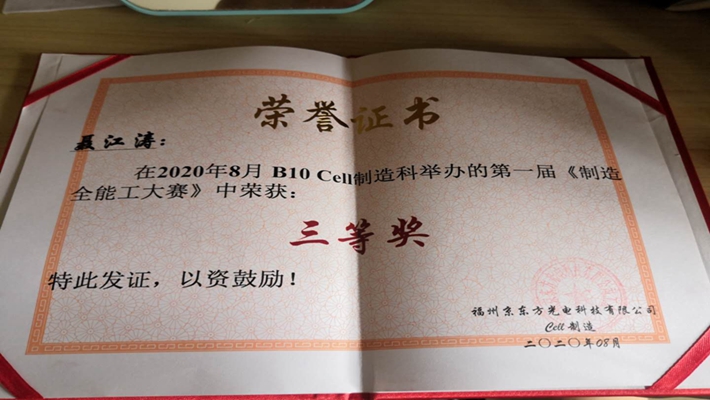 荣誉证书
聂江涛：
在2020年8月 B10 Cell制造科举办的第一届《制造
全能工大赛》中荣获：
三等奖
特此发证，以资鼓励！
福州京东方光电科技有限公司
Cell 制造
二〇二〇年08月